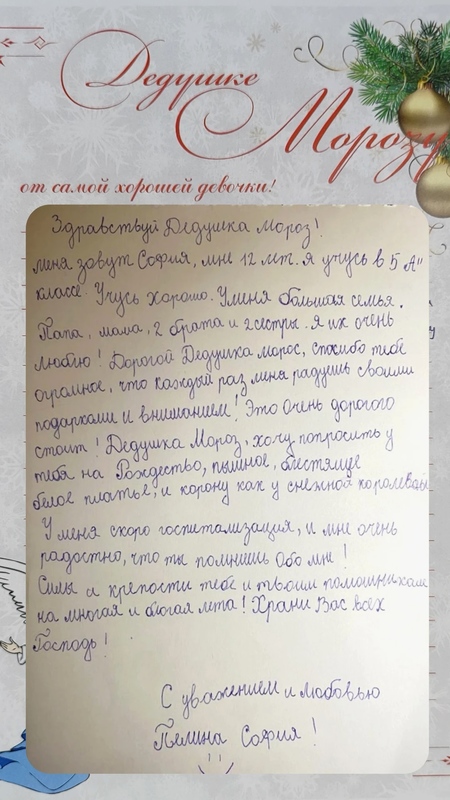 Дедушке
Морозу
от самой хорошей девочки!
Здравствуй Дедушка Мороз!
меня зовут София, мне 12 лет. я учусь в 5 "А"
классе. Учусь хорошо. У меня большая семья.
Папа, мама, 2 брата и 2 сестры. я их очень
люблю! Дорогой Дедушка морос, спосибо тебе
огромное, что каждый раз меня радуешь своими
подарками и вниманием! Это Очень дорогого
стоит! Дедушка Мороз, хочу попросить у
тебя на Рождество, пышное, блестящие
белое платье, и корону как у снежной королевы.
У меня скоро госпитализация, и мне очень
радостно, что ты помнишь Обо мне!
Силы и крепости тебе и твоим помошникам
на многая и благая лета! Храни Вас всех
Господь!
С уважением и любовью
София!